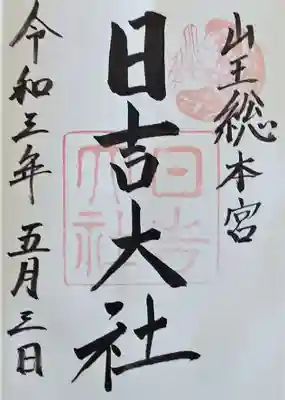 山王総本宮
日吉大社
日吉大社
令和三年 五月三日